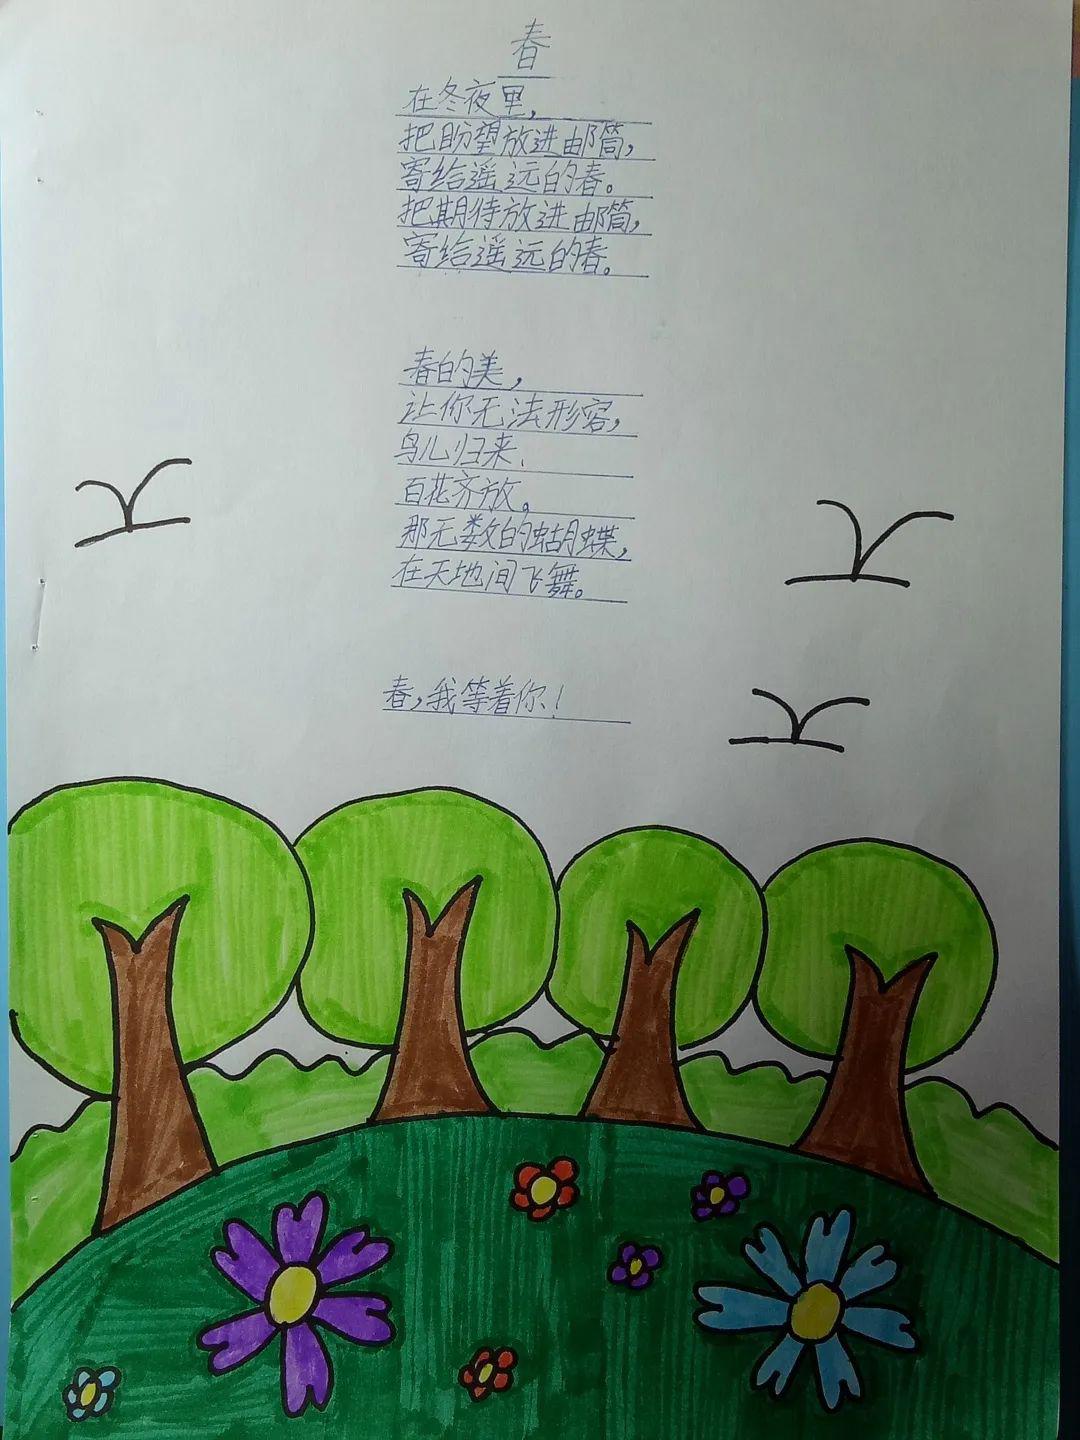 春
在冬夜里，
把盼望放进邮筒，
寄给遥远的春。
把期待放进邮筒，
寄给遥远的春。
春的美，
让你无法形容，
鸟儿归来、
百花齐放。
那无数的蝴蝶，
在天地间飞舞。
春，我等着你！